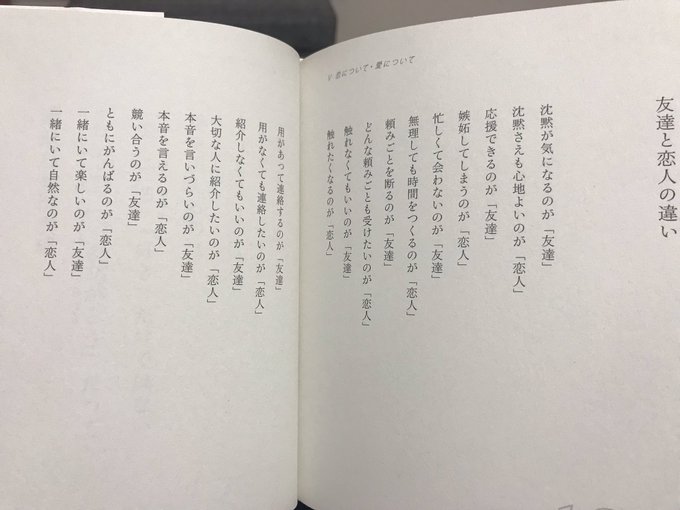 V 恋について・愛について
友達と恋人の違い
沈黙が気になるのが「友達」
沈黙さえも心地よいのが「恋人」
応援できるのが「友達」
嫉妬してしまうのが「恋人」
忙しくて会わないのが「友達」
無理しても時間をつくるのが「恋人」
頼みごとを断るのが「友達」
どんな頼みごとも受けたいのが「恋人」
触れなくてもいいのが「友達」
触れたくなるのが「恋人」
用があって連絡するのが「友達」
用がなくても連絡したいのが「恋人」
紹介しなくてもいいのが「友達」
大切な人に紹介したいのが「恋人」
本音を言いづらいのが「友達」
本音を言えるのが「恋人」
競い合うのが「友達」
ともにがんばるのが「恋人」
一緒にいて楽しいのが「友達」
一緒にいて自然なのが「恋人」